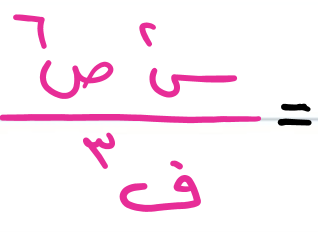 = س٢ ص٦
ف٣